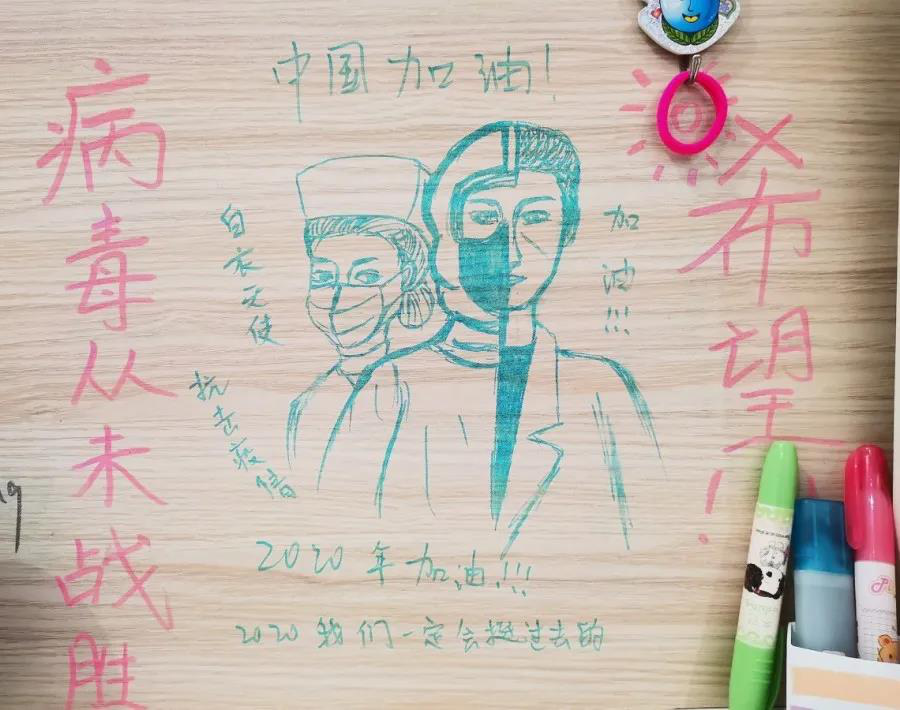 中国加油!
病毒从未战胜
希望!
白衣天使
抗击疫情
加油!!!
2020年加油!!!
2020我们一定会挺过去的
19